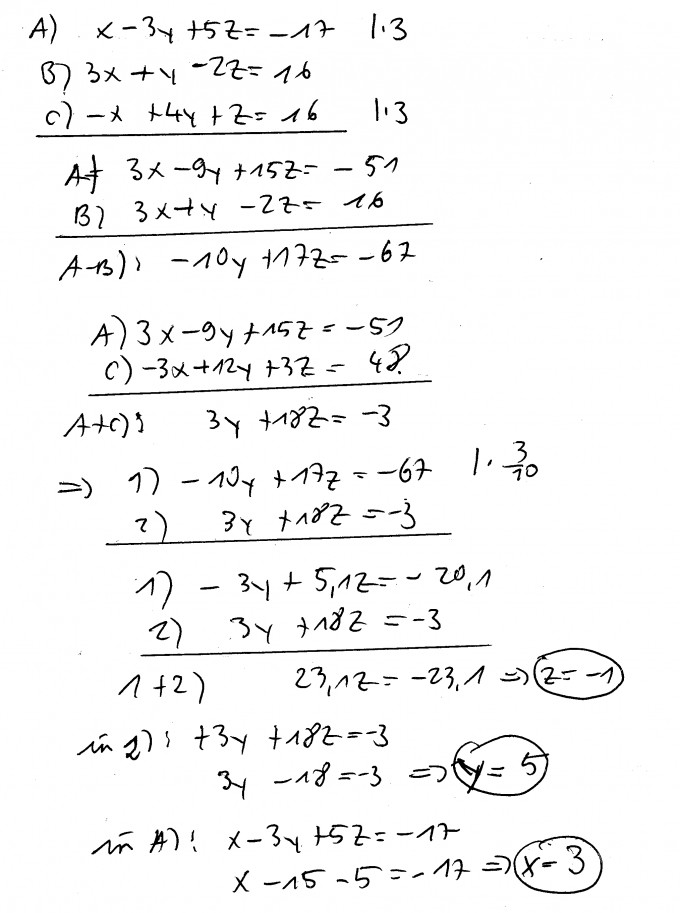 A) x-3y+5z=-17 |·3
B) 3x+y-2z=16
C) -x+4y+z=16 |·3
A) 3x-9y+15z=-51
B) 3x+y-2z=16
A-B): -10y+17z=-67
A) 3x-9y+15z=-51
C) -3x+12y+3z=48
A+C): 3y+18z=-3
=> 1) -10y+17z=-67 |·3/10
2) 3y+18z=-3
1) -3y+5,1z=-20,1
2) 3y+18z=-3
1+2) 23,1z=-23,1 => z=-1
in 2): +3y+18z=-3
3y-18=-3 => y=5
in A): x-3y+5z=-17
x-15-5=-17 => x=3